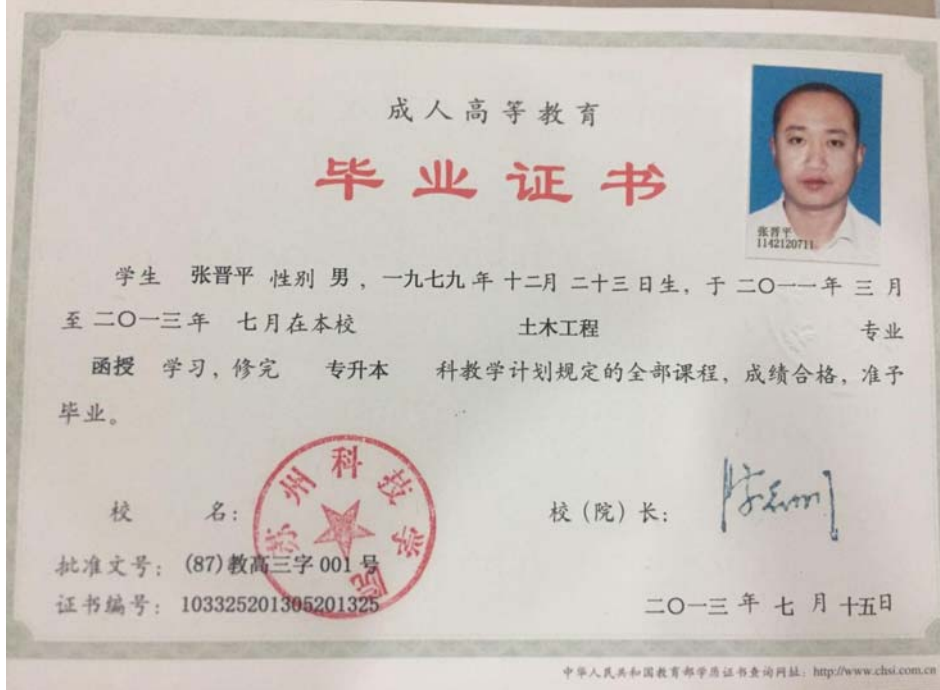 成人高等教育
毕业证书
张晋平
1142120711
学生 张晋平 性别 男，一九七九年 十二月 二十三日生，于二〇一一年 三 月
至二〇一三年 七月在本校 土木工程 专业
函授 学习，修完 专升本 科教学计划规定的全部课程，成绩合格，准予
毕业。
苏州科技学院
校 名：
校（院）长：
批准文号：(87)教高三字 001 号
证书编号：103325201305201325
二〇一三 年 七 月 十五日
中华人民共和国教育部学历证书查询网址：http://www.chsi.com.cn